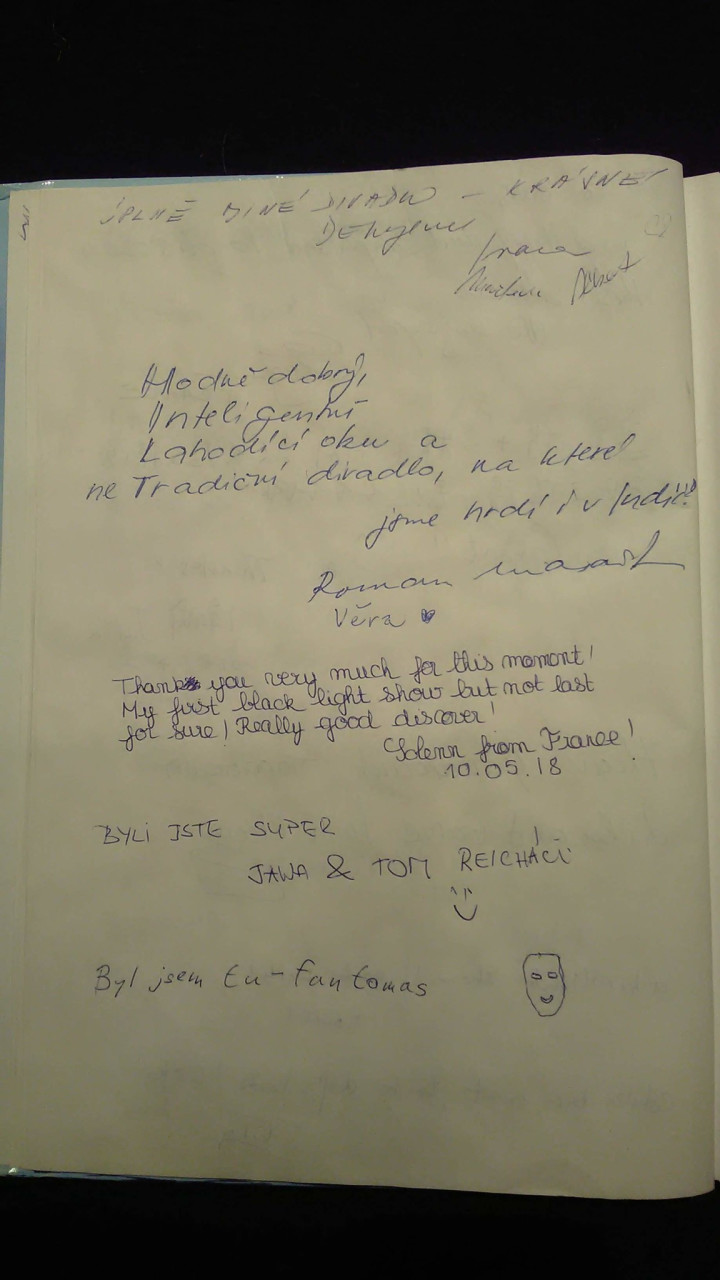 ÚPLNĚ JINÉ DIVADLO - KRÁSNÉ!
Děkujeme
Hodně dobrý,
Inteligentní
Lahodící oku a
ne Tradiční divadlo, na které
jsme hrdí i v Indii!
Roman
Věra
Thank you very much for this moment!
My first black light show but not last
for sure! Really good discover!
Solenn from France!
10.05.18
BYLI JSTE SUPER
JAWA & TOM REICHÁCI
Byl jsem tu - fantomas